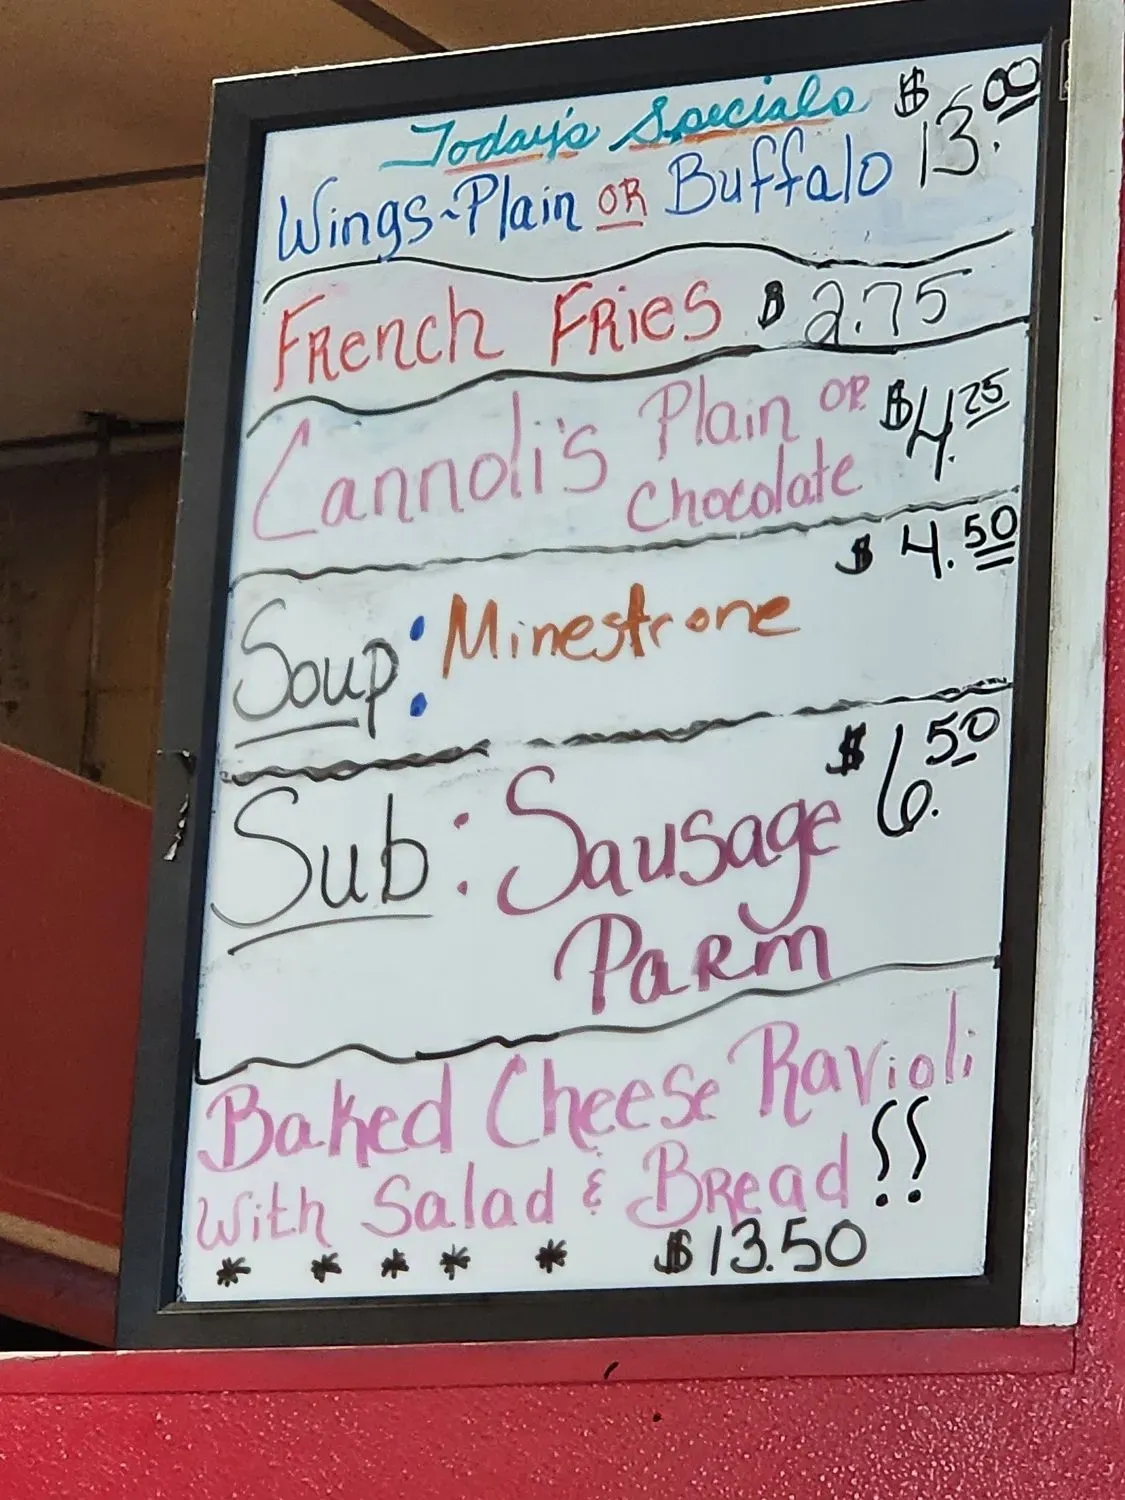 Today's Specials
Wings~Plain OR Buffalo $13.00
French Fries $2.75
Cannoli's Plain OR $4.25
Chocolate
$4.50
Soup: Minestrone
Sub: Sausage $6.50
Parm
Baked Cheese Ravioli
With Salad & Bread!!
* * * * * $13.50